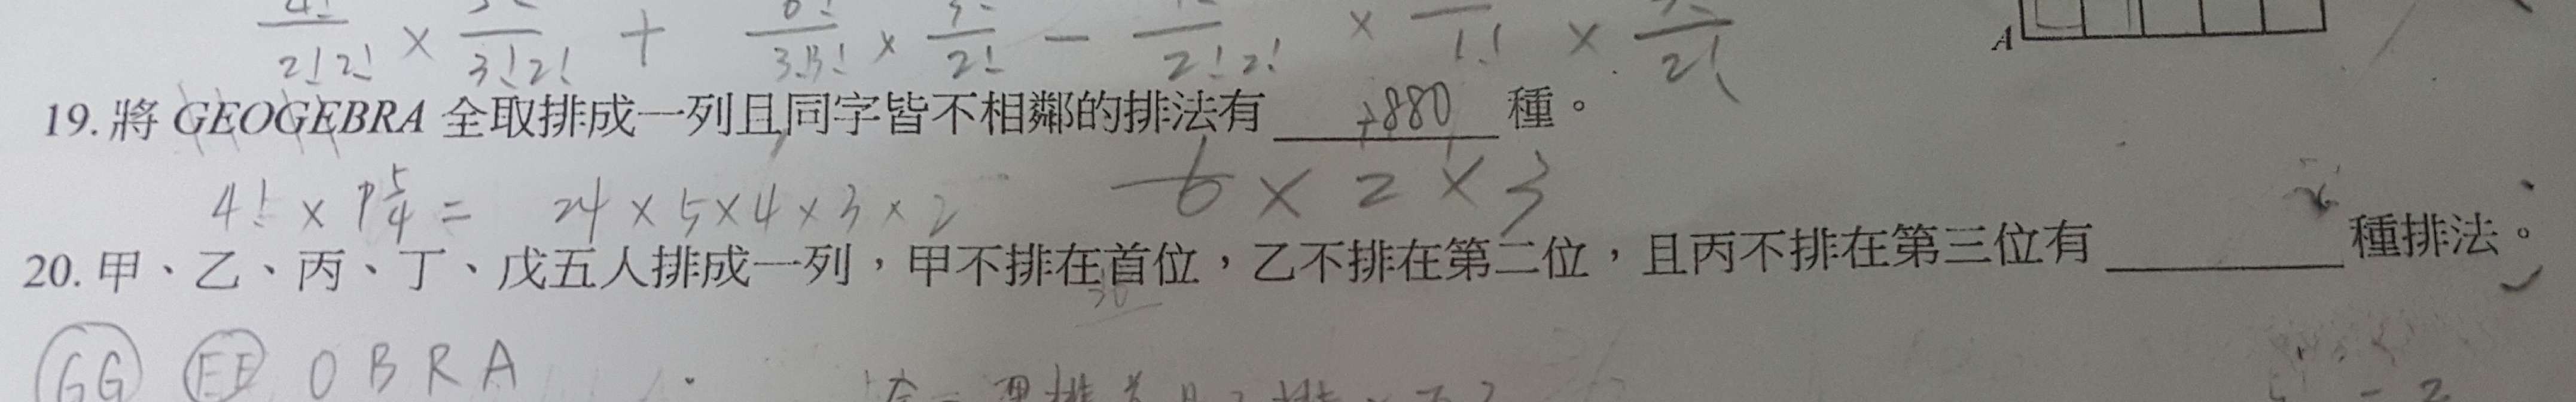 2!2! × 3!2! + 3!3! × 2! - 2!2! × 1! × 2!
A
19. 將 GEOGEBRA 全取排成一列且同字皆不相鄰的排法有 2880 種。
4! × P⁵₄ = 24 × 5 × 4 × 3 × 2
6 × 2 × 3
20. 甲、乙、丙、丁、戊五人排成一列，甲不排在首位，乙不排在第二位，且丙不排在第三位有 種排法。
GG EE O B R A